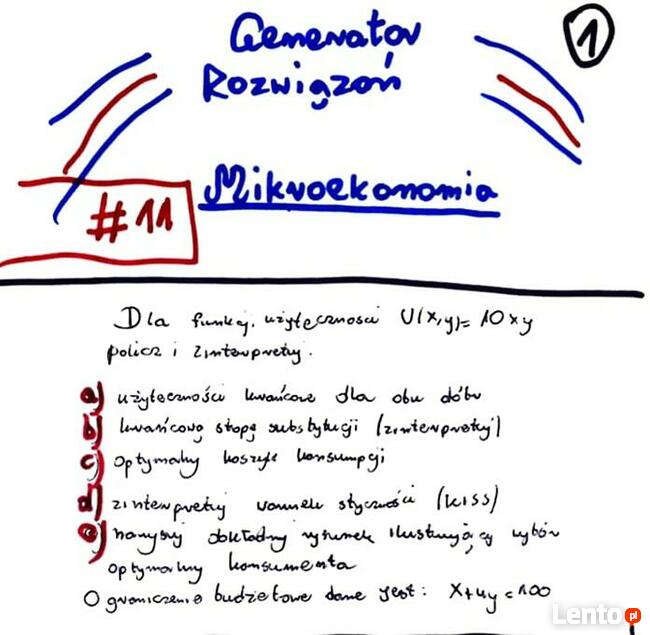 Generator
Rozwiązań
1
Mikroekonomia
#11
Dla funkcji użyteczności U(x,y)=10xy
policz i zinterpretuj.
a) użyteczności krańcowe dla obu dóbr
b) krańcową stopę substytucji (zinterpretuj)
c) optymalny koszyk konsumpcji
d) zinterpretuj warunek styczności (KISS)
e) narysuj dokładny rysunek ilustrujący wybór
optymalny konsumenta
Ograniczenie budżetowe dane jest: x+4y=100
Lento.pl